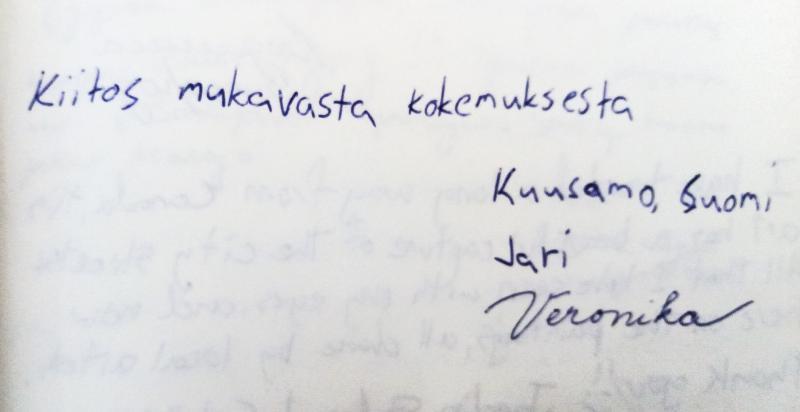 Kiitos mukavasta kokemuksesta
Kuusamo, Suomi
Jari
Veronika